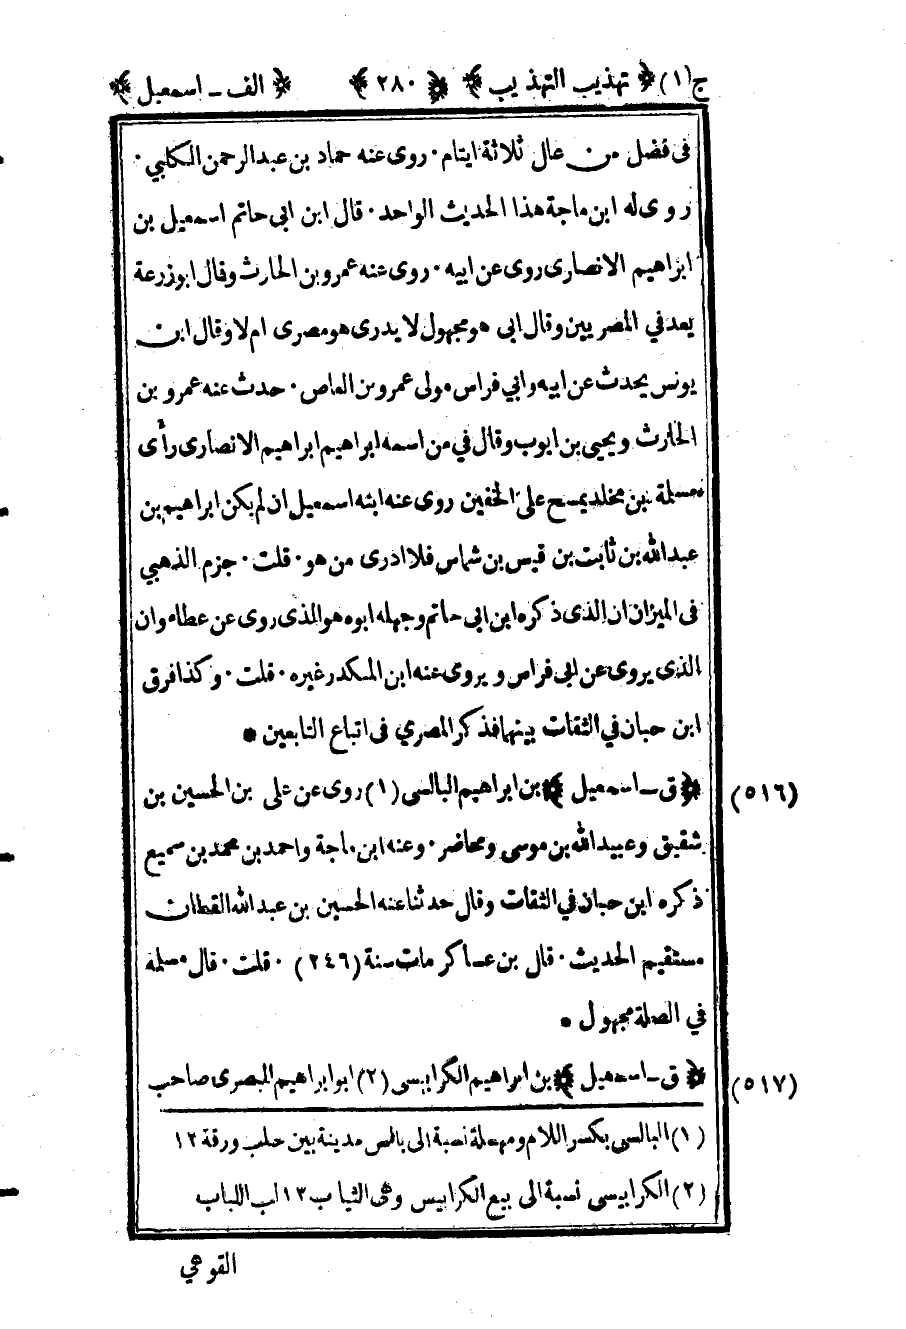 ج(١) ﴿ تهذيب التهذيب ﴾ ﴿ ٢٨٠ ﴾ ﴿ الف ــ اسمعيل ﴾
فى فضل من عال ثلاثة ايتام · روى عنه حماد بن عبدالرحمن الكلبي ·
روى له ابن ماجة هذا الحديث الواحد · قال ابن ابى حاتم اسمعيل بن
ابراهيم الانصارى روى عن ابيه · روى عنه عمرو بن الحارث وقال ابوزرعة
يعد في المصريين وقال ابى هو مجهول لا يدرى هو مصرى ام لا وقال ابن
يونس يحدث عن ابيه وابي فراس مولى عمرو بن العاص · حدث عنه عمرو بن
الحارث ويحيى بن ايوب وقال في من اسمه ابراهيم ابراهيم الانصارى رأى
مسلمة بن مخلد يمسح على الخفين روى عنه ابنه اسمعيل ان لم يكن ابراهيم بن
عبدالله بن ثابت بن قيس بن شماس فلا ادرى من هو · قلت · جزم الذهبي
فى الميزان ان الذى ذكره ابن ابى حاتم وجهله ابوه هو الذى روى عن عطاء وان
الذى يروى عن ابى فراس ويروى عنه ابن المنكدر غيره · قلت · وكذا فرق
ابن حبان في الثقات بينهما فذكر المصري فى اتباع التابعين *
﴿ ق ــ اسمعيل ﴾ بن ابراهيم البالسى (١) روى عن على بن الحسين بن (٥١٦)
شقيق وعبيدالله بن موسى ومحاضر · وعنه ابن ماجة واحمد بن محمد بن سميع
ذكره ابن حبان في الثقات وقال حدثنا عنه الحسين بن عبدالله القطان
مستقيم الحديث · قال بن عساكر مات سنة (٢٤٦) · قلت · قال مسلمة
في الصلة مجهول *
﴿ ق ــ اسمعيل ﴾ بن ابراهيم الكرابيسى (٢) ابو ابراهيم البصرى صاحب (٥١٧)
(١) البالسى بكسر اللام ومهملة نسبة الى بالس مدينة بين حلب ورقة ١٢
(٢) الكرابيسى نسبة الى بيع الكرابيس وهى الثياب ١٣ لب اللباب
القوهي